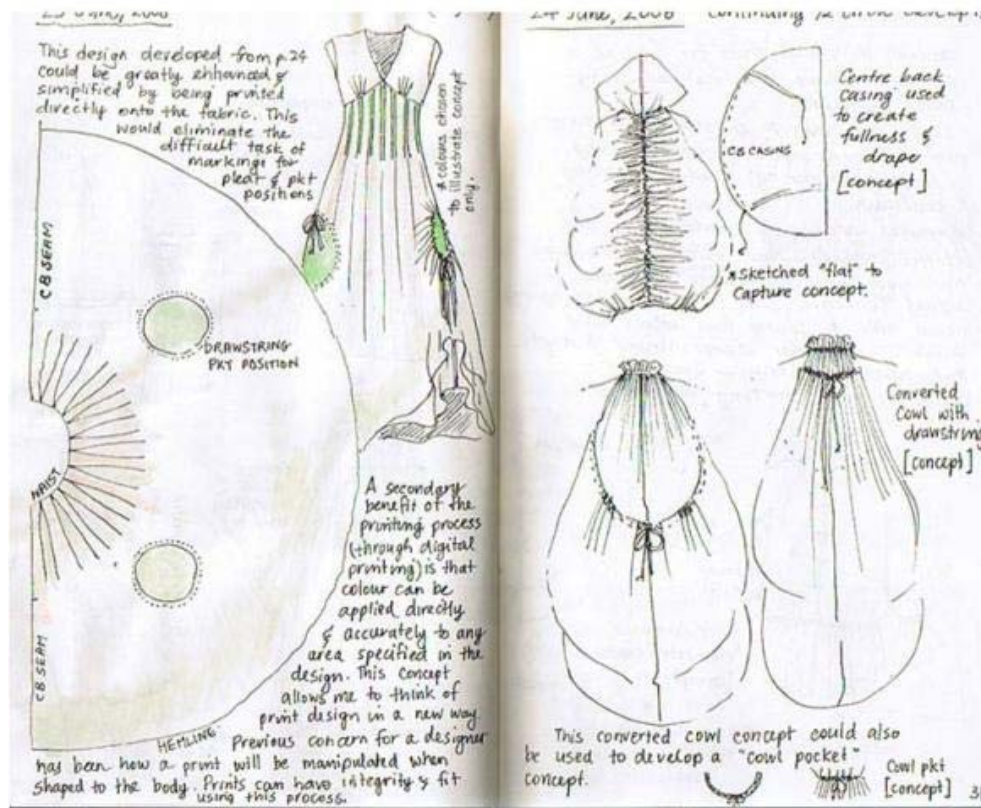 This design developed from p.24
could be greatly enhanced &
simplified by being printed
directly onto the fabric. This
would eliminate the
difficult task of
markings for
pleat & pkt
positions
* colours chosen
to illustrate concept
only.
CB SEAM
DRAWSTRING
PKT POSITION
WAIST
CB SEAM
HEMLINE
A secondary
benefit of the
printing process
(through digital
printing) is that
colour can be
applied directly
& accurately to any
area specified in the
design. This concept
allows me to think of
print design in a new way.
Previous concern for a designer
has been how a print will be manipulated when
shaped to the body. Prints can have integrity & fit
using this process.
24 June, 2006
Continuing 1/2 circle
Centre back
casing used
to create
fullness &
drape
[concept]
CB CASING
* sketched "flat" to
capture concept.
Converted
Cowl with
drawstring
[concept]
This converted cowl concept could also
be used to develop a "cowl pocket"
concept.
Cowl pkt
[concept]